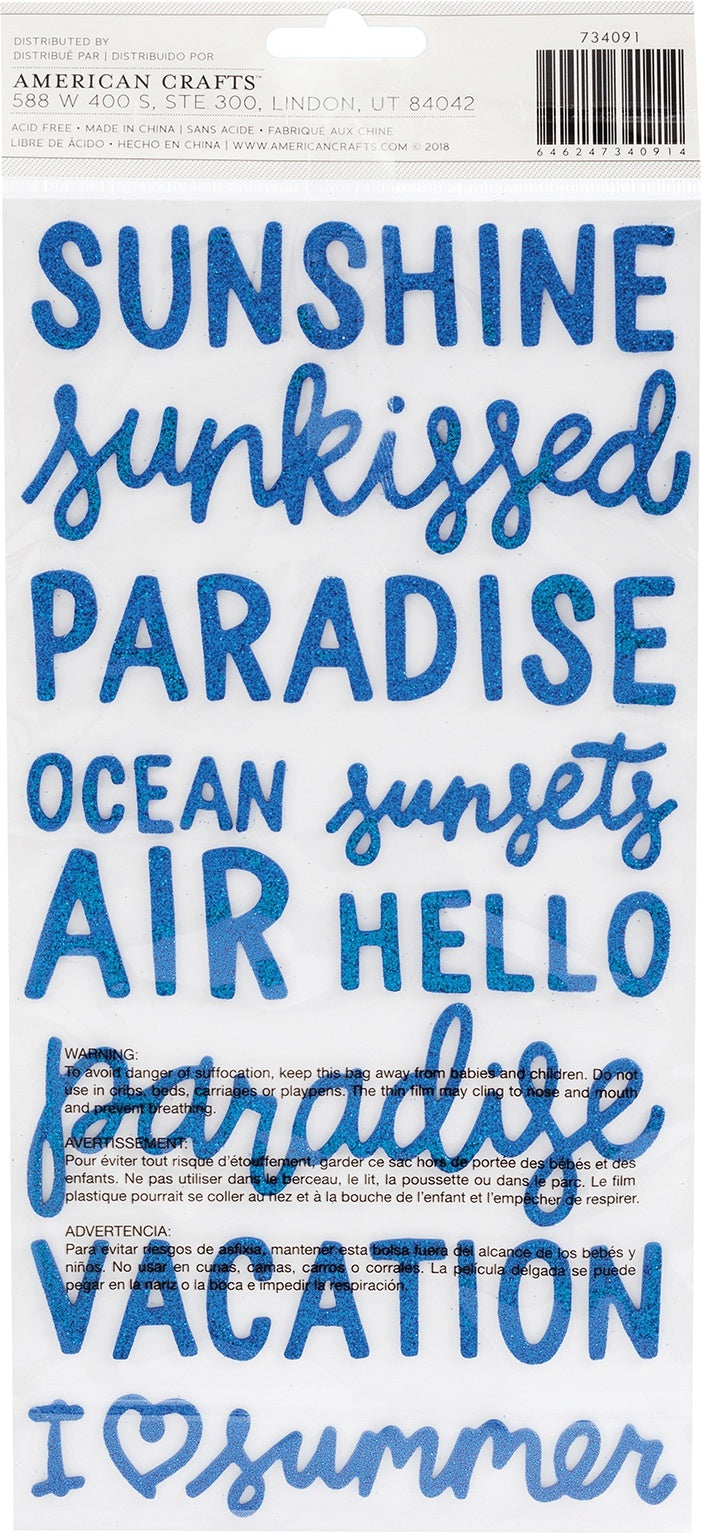 DISTRIBUTED BY
DISTRIBUÉ PAR | DISTRIBUIDO POR
AMERICAN CRAFTS™
588 W 400 S, STE 300, LINDON, UT 84042
ACID FREE • MADE IN CHINA | SANS ACIDE • FABRIQUÉ AUX CHINE
LIBRE DE ÁCIDO • HECHO EN CHINA | WWW.AMERICANCRAFTS.COM © 2018
734091
646247340914
SUNSHINE
sunkissed
PARADISE
OCEAN sunsets
AIR HELLO
paradise
WARNING:
To avoid danger of suffocation, keep this bag away from babies and children. Do not
use in cribs, beds, carriages or playpens. The thin film may cling to nose and mouth
and prevent breathing.
AVERTISSEMENT:
Pour éviter tout risque d'étouffement, garder ce sac hors de portée des bébés et des
enfants. Ne pas utiliser dans le berceau, le lit, la poussette ou dans le parc. Le film
plastique pourrait se coller au nez et à la bouche de l'enfant et l'empêcher de respirer.
ADVERTENCIA:
Para evitar riesgos de asfixia, mantener esta bolsa fuera del alcance de los bebés y
niños. No usar en cunas, camas, carros o corrales. La película delgada se puede
pegar en la nariz o la boca e impedir la respiración.
VACATION
I ♡ summer